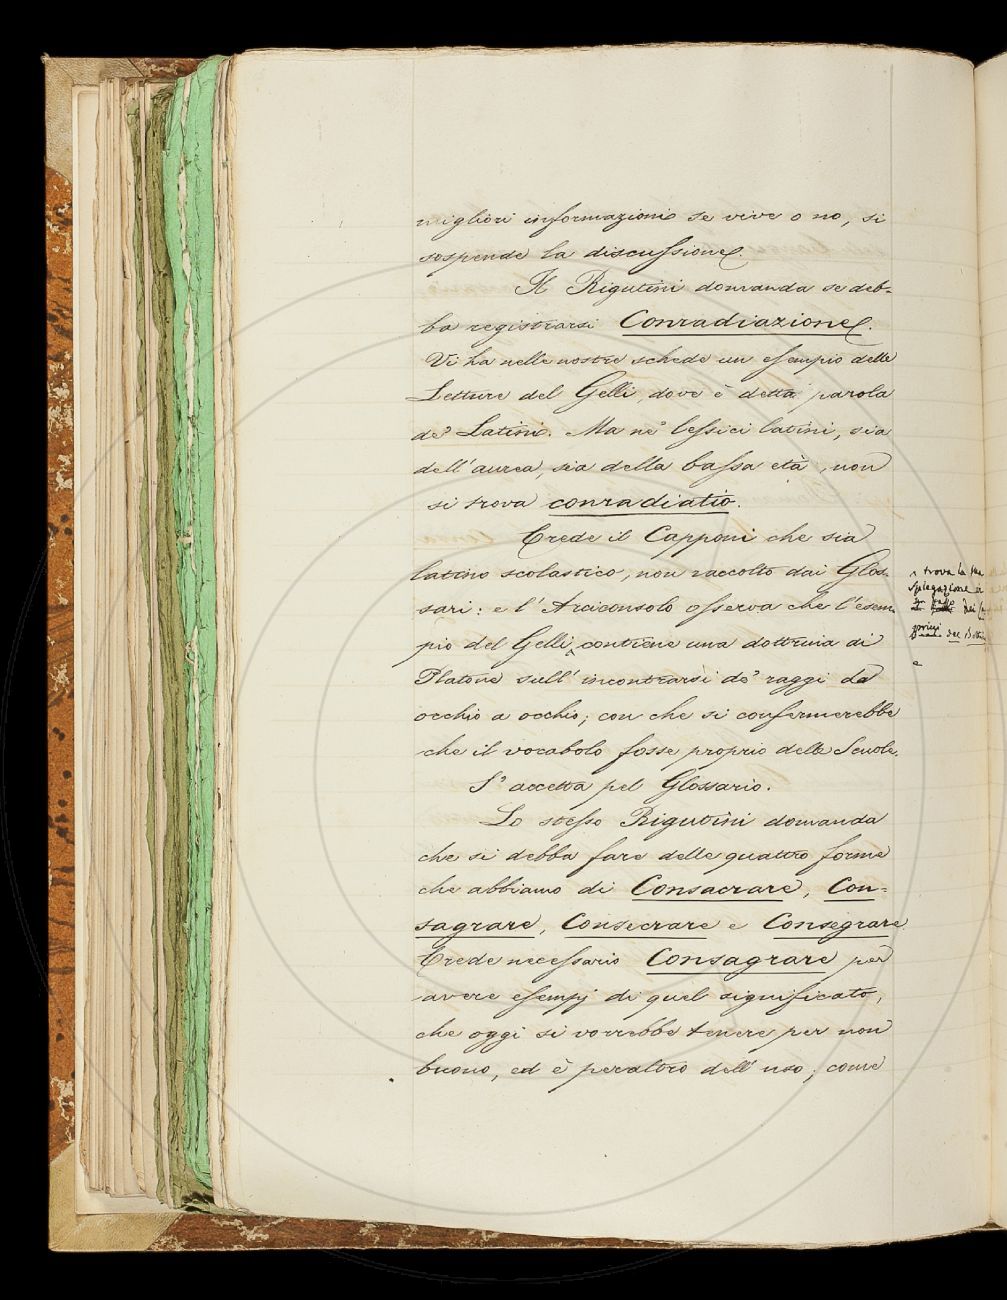 migliori informazioni se vive o no, si
sospende la discussione.
Il Rigutini domanda se deb-
ba registrarsi Conradiazione.
Vi ha nelle nostre schede un esempio delle
Letture del Gelli, dove è detta parola
de' Latini. Ma ne' lessici latini, sia
dell'aurea, sia della bassa età, non
si trova conradiatio.
Crede il Capponi che sia
latino scolastico, non raccolto dai Glos-
sari: e l'Arciconsolo osserva che l'esem-
pio del Gelli contiene una dottrina di
Platone sull'incontrarsi de' raggi da
occhio a occhio; con che si confermerebbe
che il vocabolo fosse proprio delle Scuole.
S'accetta pel Glossario.
Lo stesso Rigutini domanda
che si debba fare delle quattro forme
che abbiamo di Consacrare, Con-
sagrare, Consecrare e Consegrare.
Crede necessario Consagrare per
avere esempj di quel significato,
che oggi si vorrebbe tenere per non
buono, ed è peraltro dell'uso; come
trova la sua
spiegazione